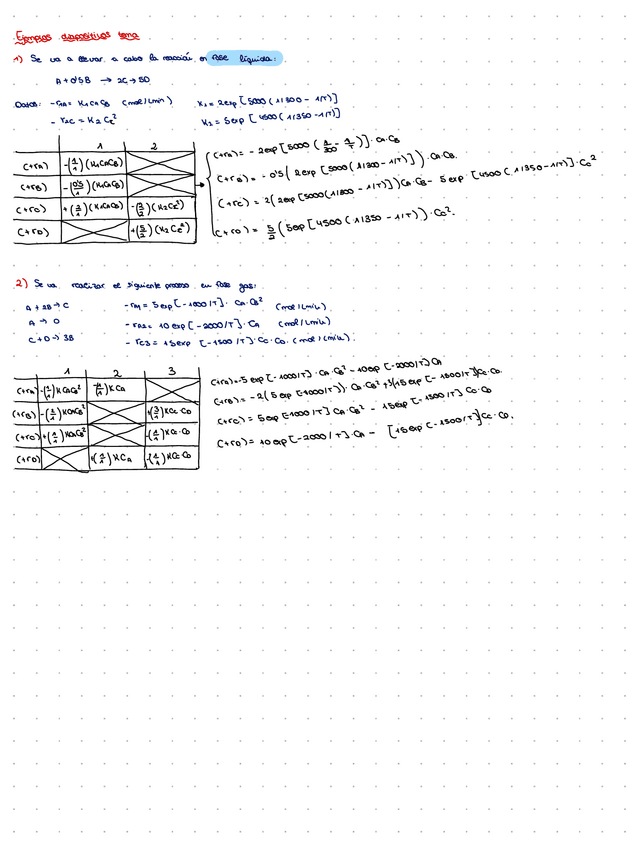 Ejemplos diapositivas tema
1) Se va a llevar a cabo la reacción en fase líquida:
A + 0'5B → 2C → 5D
Datos: -r1A = K1CACB (mol/Lmin) K1 = 2exp[5000(1/300 - 1/T)]
-r2C = K2Cc² K2 = 5exp[4500(1/350 - 1/T)]
1 2
(+rA) -(1/1)(K1CACB)
(+rB) -(0'5/1)(K1CACB)
(+rC) +(2/1)(K1CACB) -(2/2)(K2Cc²)
(+rD) +(5/2)(K2Cc²)
(+rA) = - 2exp[5000(1/300 - 1/T)]·CA·CB
(+rB) = - 0'5(2exp[5000(1/300 - 1/T)])·CA·CB.
(+rC) = 2(2exp[5000(1/300 - 1/T)])CA·CB - 5exp·[4500(1/350 - 1/T)]·Cc²
(+rD) = 5/2(5exp[4500(1/350 - 1/T)])·Cc².
2) Se va realizar el siguiente proceso en fase gas:
A + 2B → C -rA1 = 5exp[-1000/T]·CA·CB² (mol/Lmin)
A → D -rA2 = 10exp[-2000/T]·CA (mol/Lmin)
C + D → 3B -rC3 = 15exp[-1500/T]·Cc·CD. (mol/Lmin).
1 2 3
(+rA) -(1/1)KCACB² -(1/1)KCA
(+rB) -(2/1)KCACB² +(3/1)KCc·CD
(+rC) +(1/1)KCACB² -(1/1)KCc·CD
(+rD) +(1/1)KCA -(1/1)KCc·CD
(+rA) = -5exp[-1000/T]·CA·CB² - 10exp[-2000/T]CA
(+rB) = -2(5exp[-1000/T])·CA·CB² + 3(15exp[-1500/T])Cc·CD.
(+rC) = 5exp[-1000/T]CA·CB² - 15exp[-1500/T]Cc·CD
(+rD) = 10exp[-2000/T]·CA - [15exp[-1500/T]]Cc·CD.